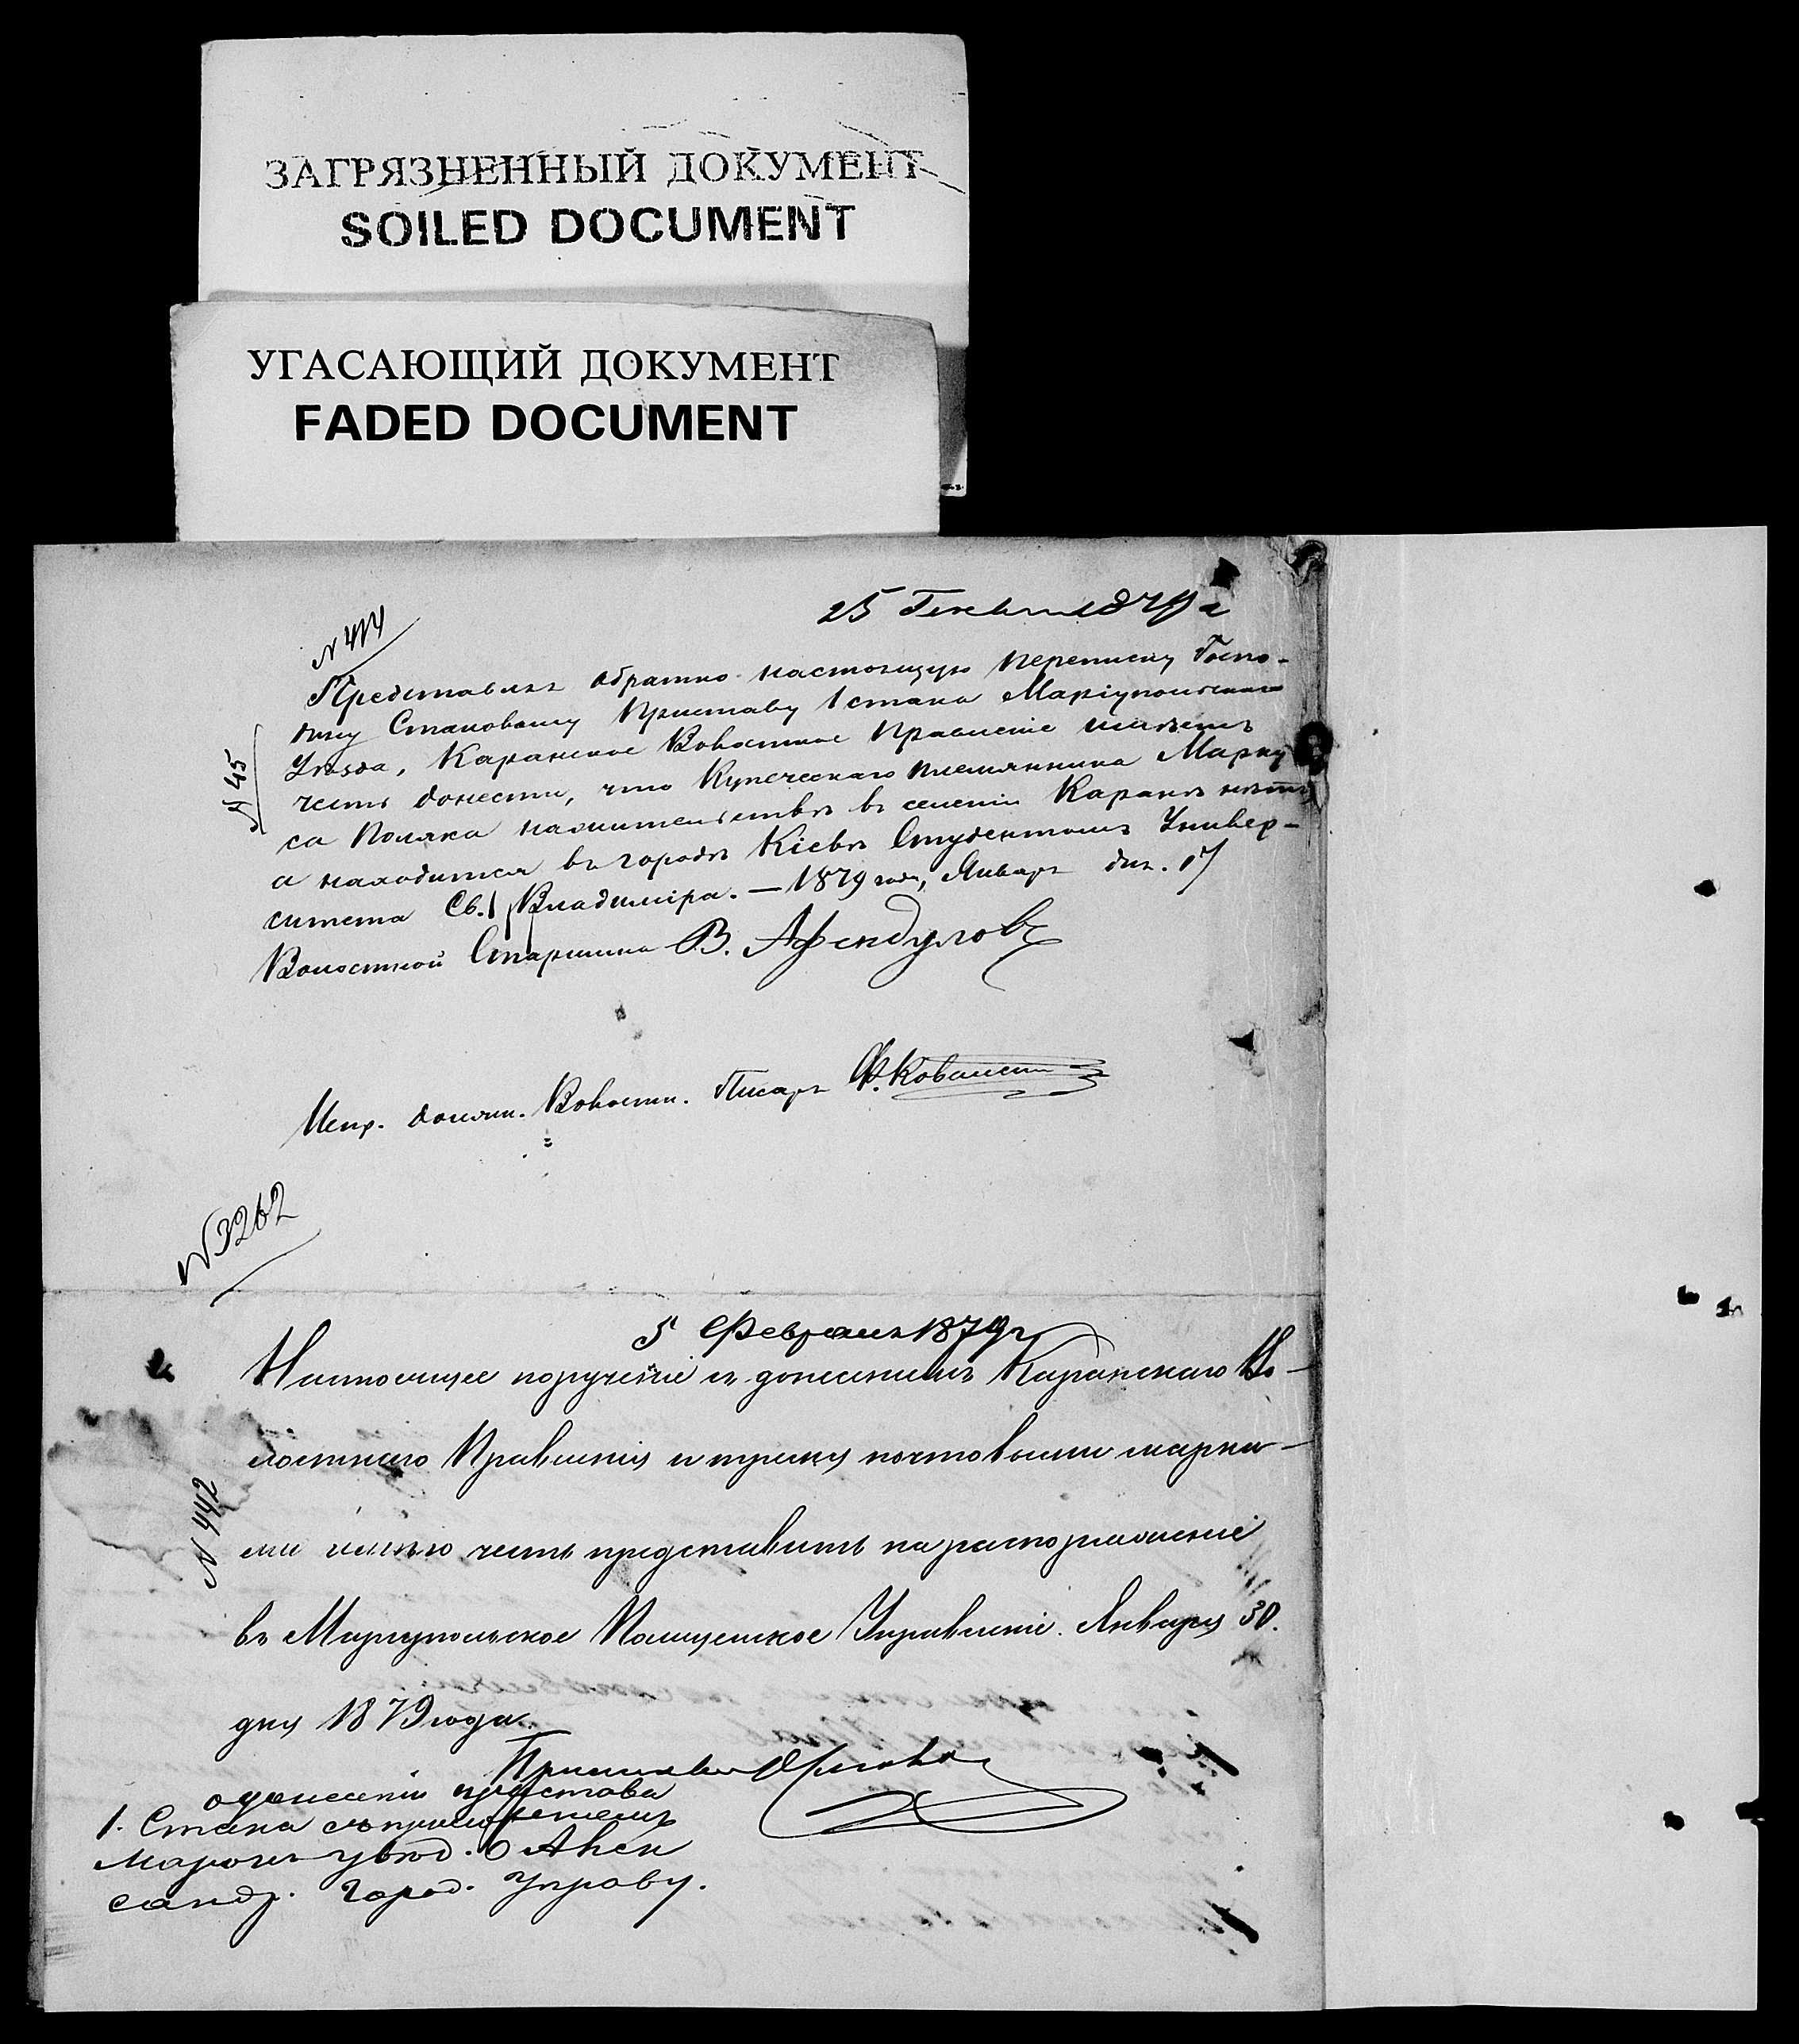 ЗАГРЯЗНЕННЫЙ ДОКУМЕНТ
SOILED DOCUMENT
УГАСАЮЩИЙ ДОКУМЕНТ
FADED DOCUMENT
25 Генваря 1879 г
N 414
Представляя обратно настоящую переписку Госпо-
дину Становому Приставу 1 стана Маріупольскаго
Уѣзда, Каранское Волостное Правленіе имѣетъ
N 45
честь донести, что Купеческаго племянника Марку
са Поляка на жительствѣ въ селеніи Карань нѣтъ,
а находится въ городѣ Кіевѣ Студентомъ Универ-
ситета Св. Владиміра. — 1879 года, Января дня. 17
Волостной Старшина В. Афендуловъ
Испр. должн. Волостн. Писаря Ф.
N 3262
5 Февраля 1879 г
Настоящее порученіе съ донесеніемъ Каранскаго Во-
лостнаго Правленія и тремя почтовыми марка-
N 442
ми имѣю честь представить на распоряженіе
въ Маріупольское Полицейское Управленіе. Января 30.
дня 1879 года.
Приставъ
о донесеніи пристава
1. Стана съ приложеніемъ
марокъ увѣд. Алек
сандр. город. управу.